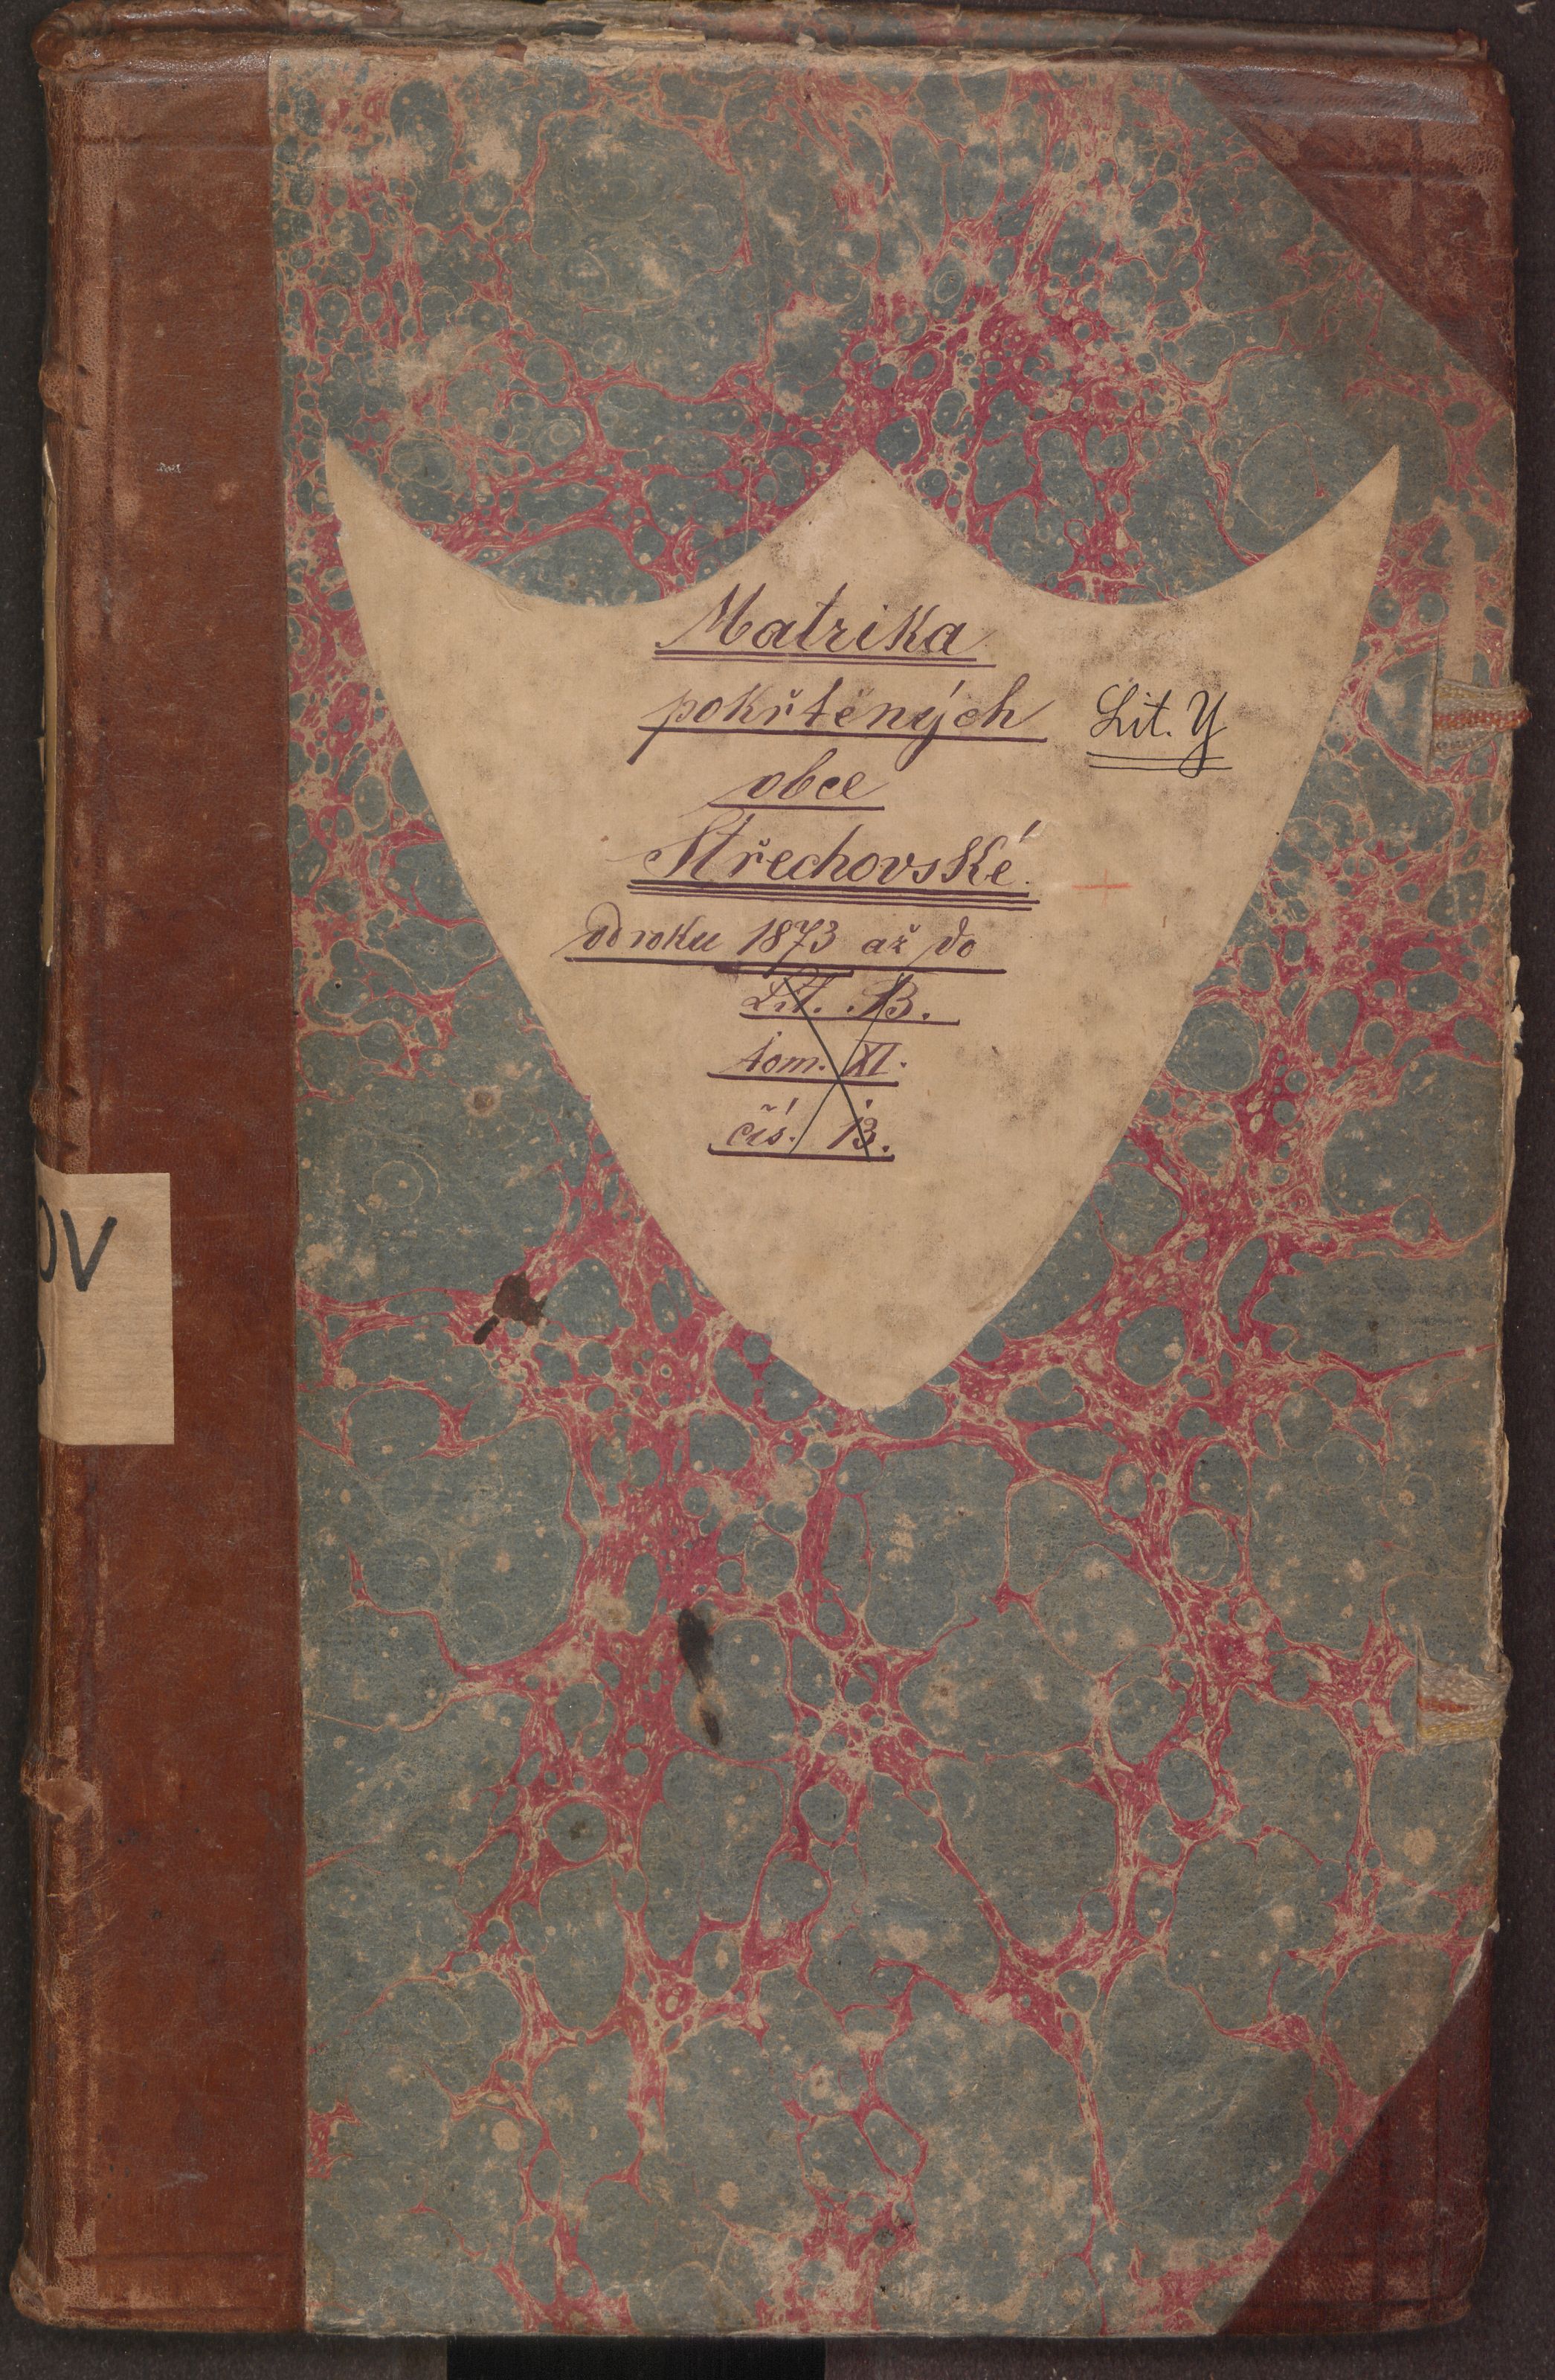 Matrika
pokřtěných Lit. Y
obce
Střechovské.
od roku 1873 až do
Lit. B.
tom. XI.
čís. 13.
OV